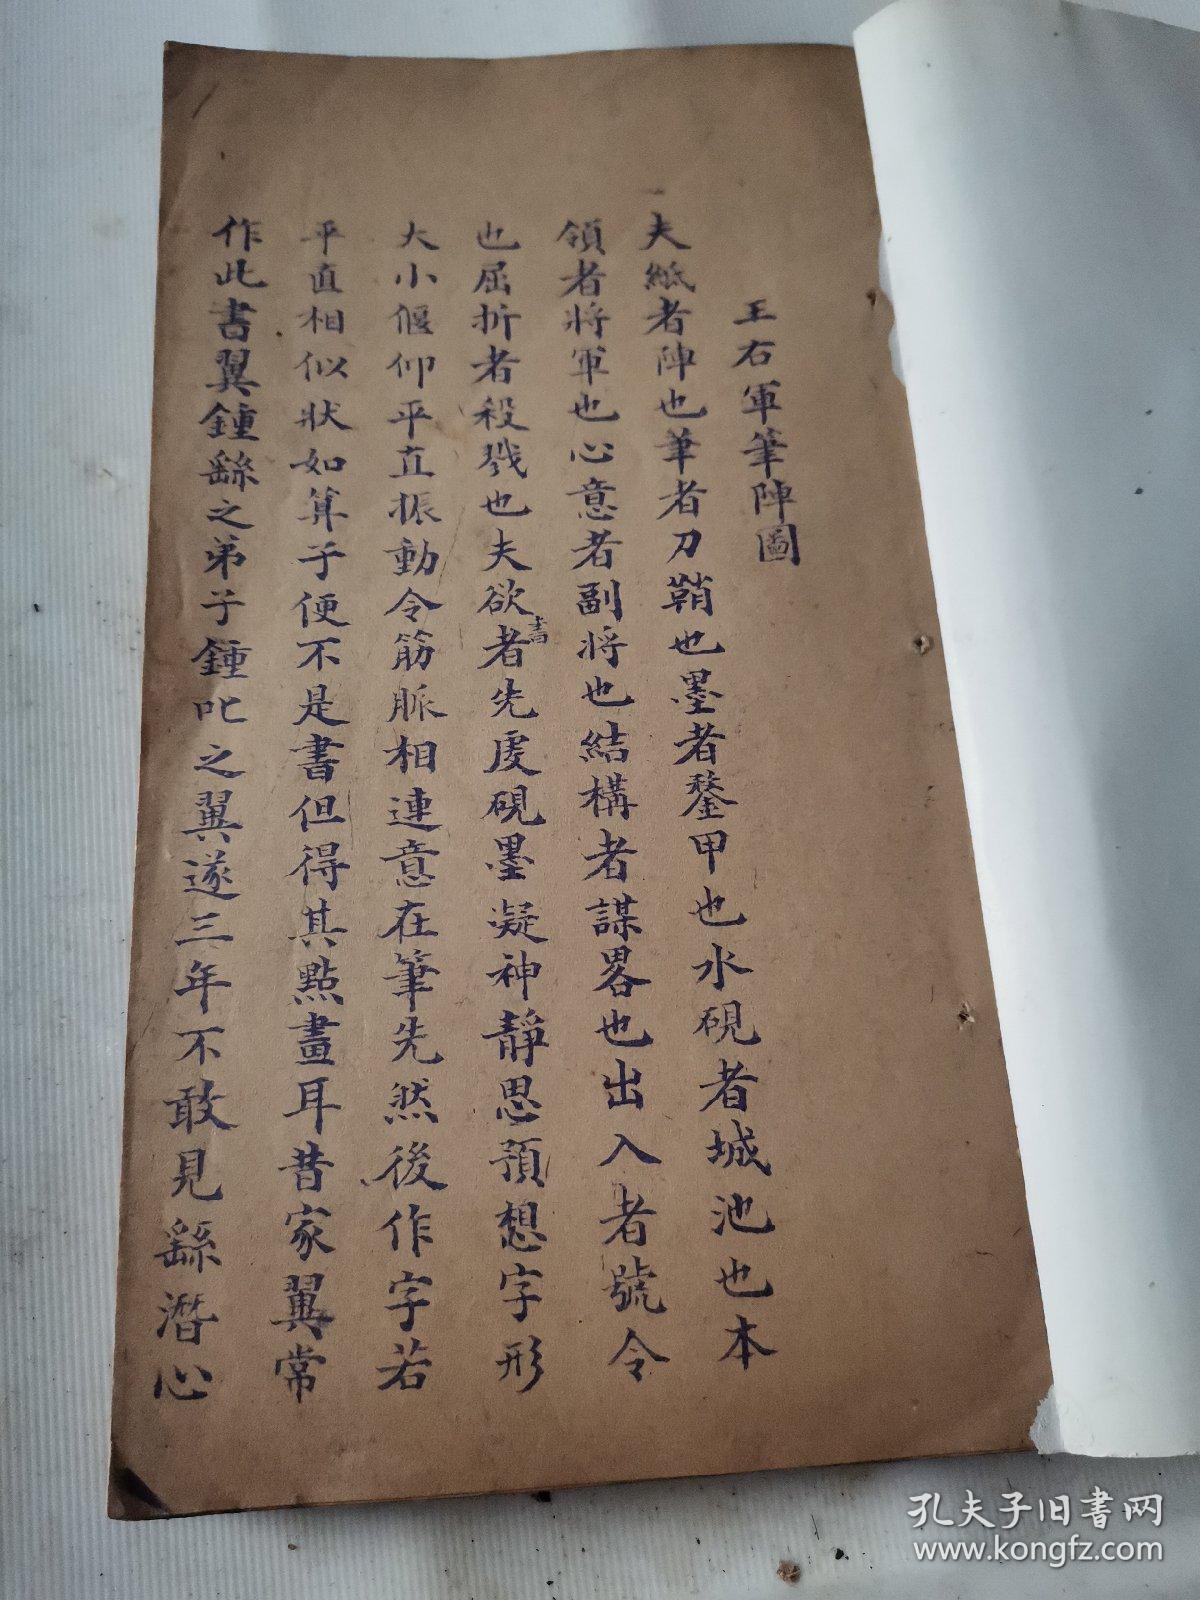 王右軍筆陣圖
夫紙者陣也筆者刀鞘也墨者鍪甲也水硯者城池也本
領者將軍也心意者副將也結構者謀畧也出入者號令
也屈折者殺戮也夫欲書者先處硯墨凝神靜思預想字形
大小偃仰平直振動令筋脈相連意在筆先然後作字若
平直相似狀如算子便不是書但得其點畫耳昔家翼常
作此書翼鍾繇之弟子鍾叱之翼遂三年不敢見繇潛心
孔夫子旧书网
www.kongfz.com